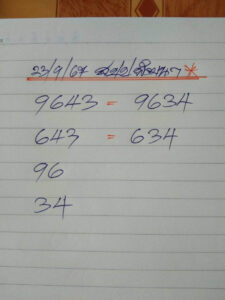 23/9/67
9643 = 9634
643 = 634
96
34